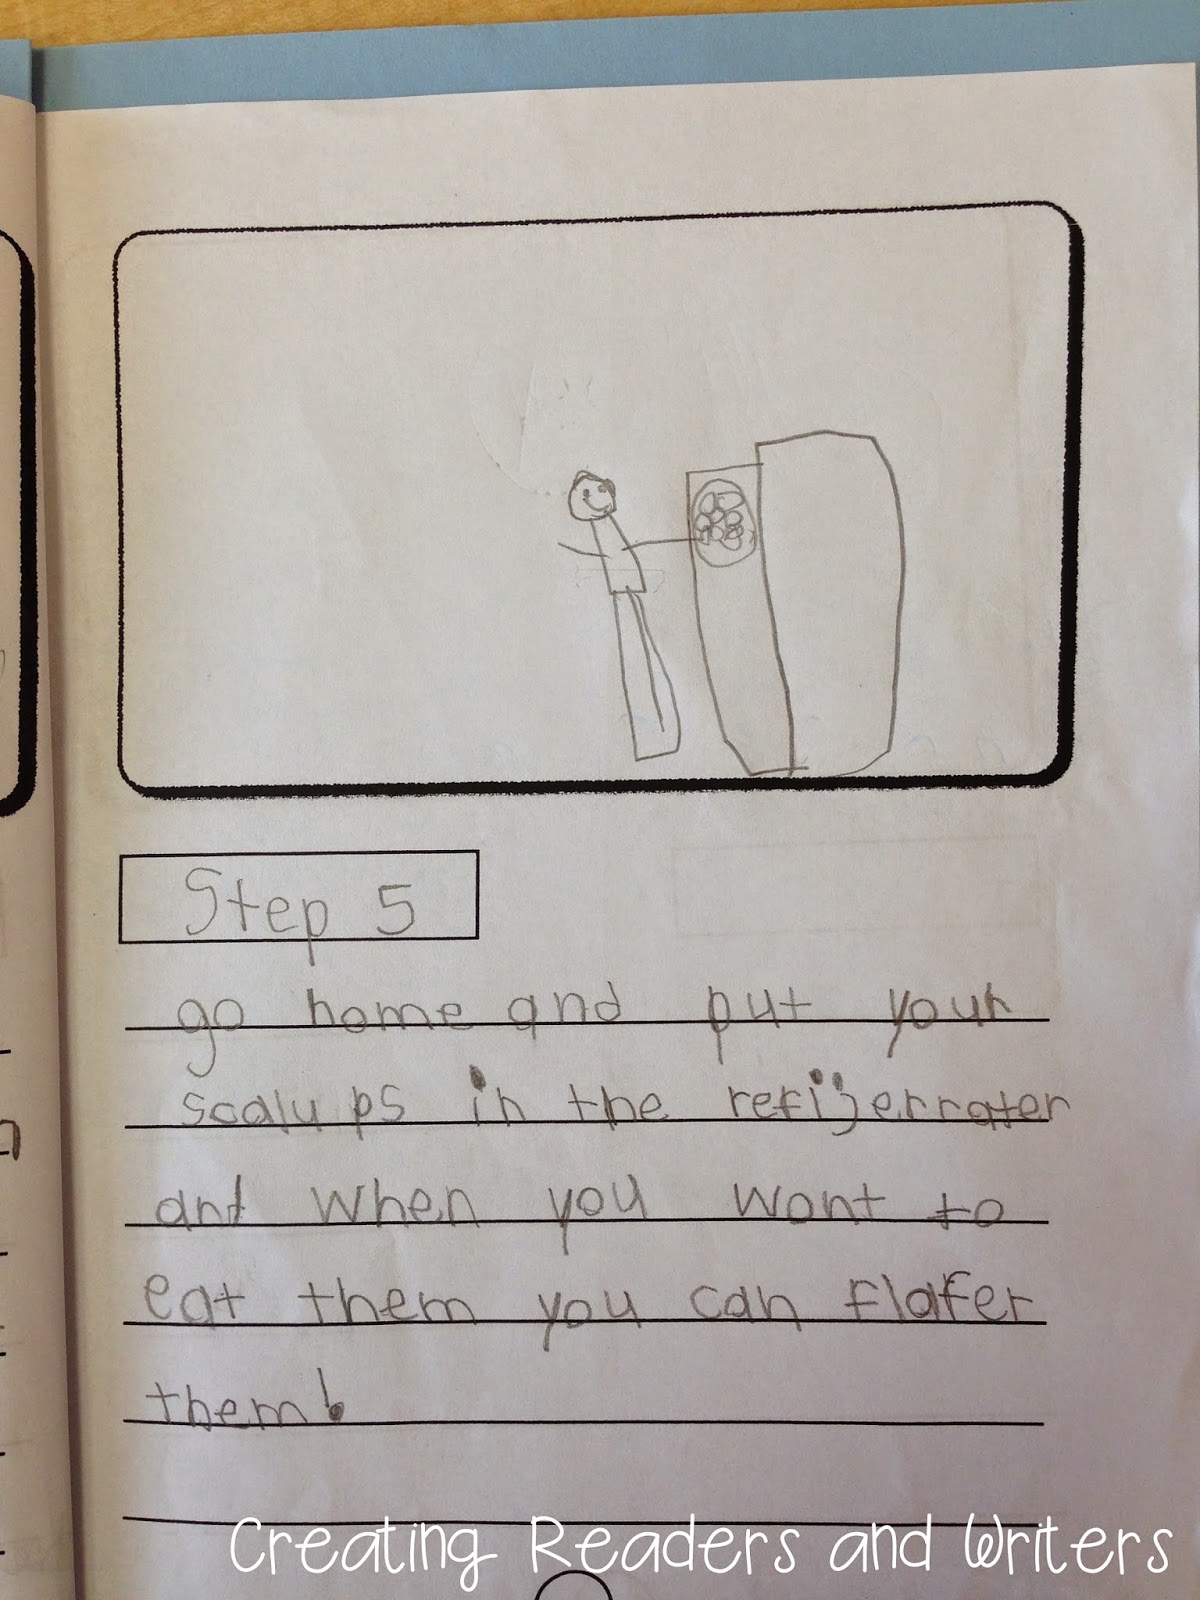 Step 5
go home and put your
scalups in the refijerrater
and when you wont to
eat them you can flafer
them!
Creating Readers and Writers